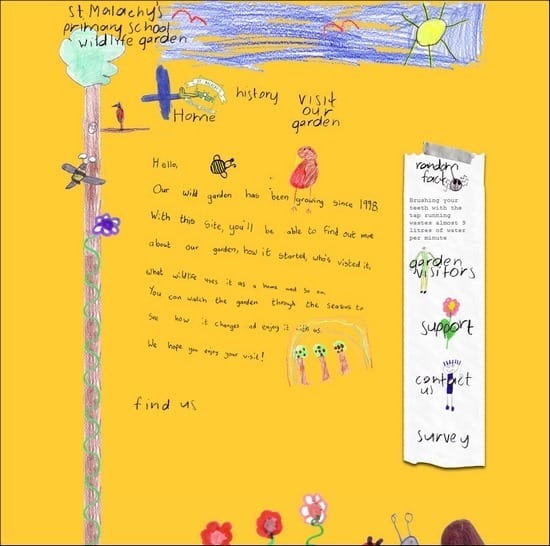 St Malachy's
primary school
wildlife garden
Home
history
visit
our
garden
Hello,
Our wild garden has been growing since 1998
With this site, you'll be able to find out more
about our garden, how it started, who's visited it,
what wildlife uses it as a home and so on.
You can watch the garden through the seasons to
see how it changes ad enjoy it with us.
We hope you enjoy your visit!
find us
random
fact
Brushing your
teeth with the
tap running
wastes almost 9
litres of water
per minute
garden
visitors
support
contact
us
survey